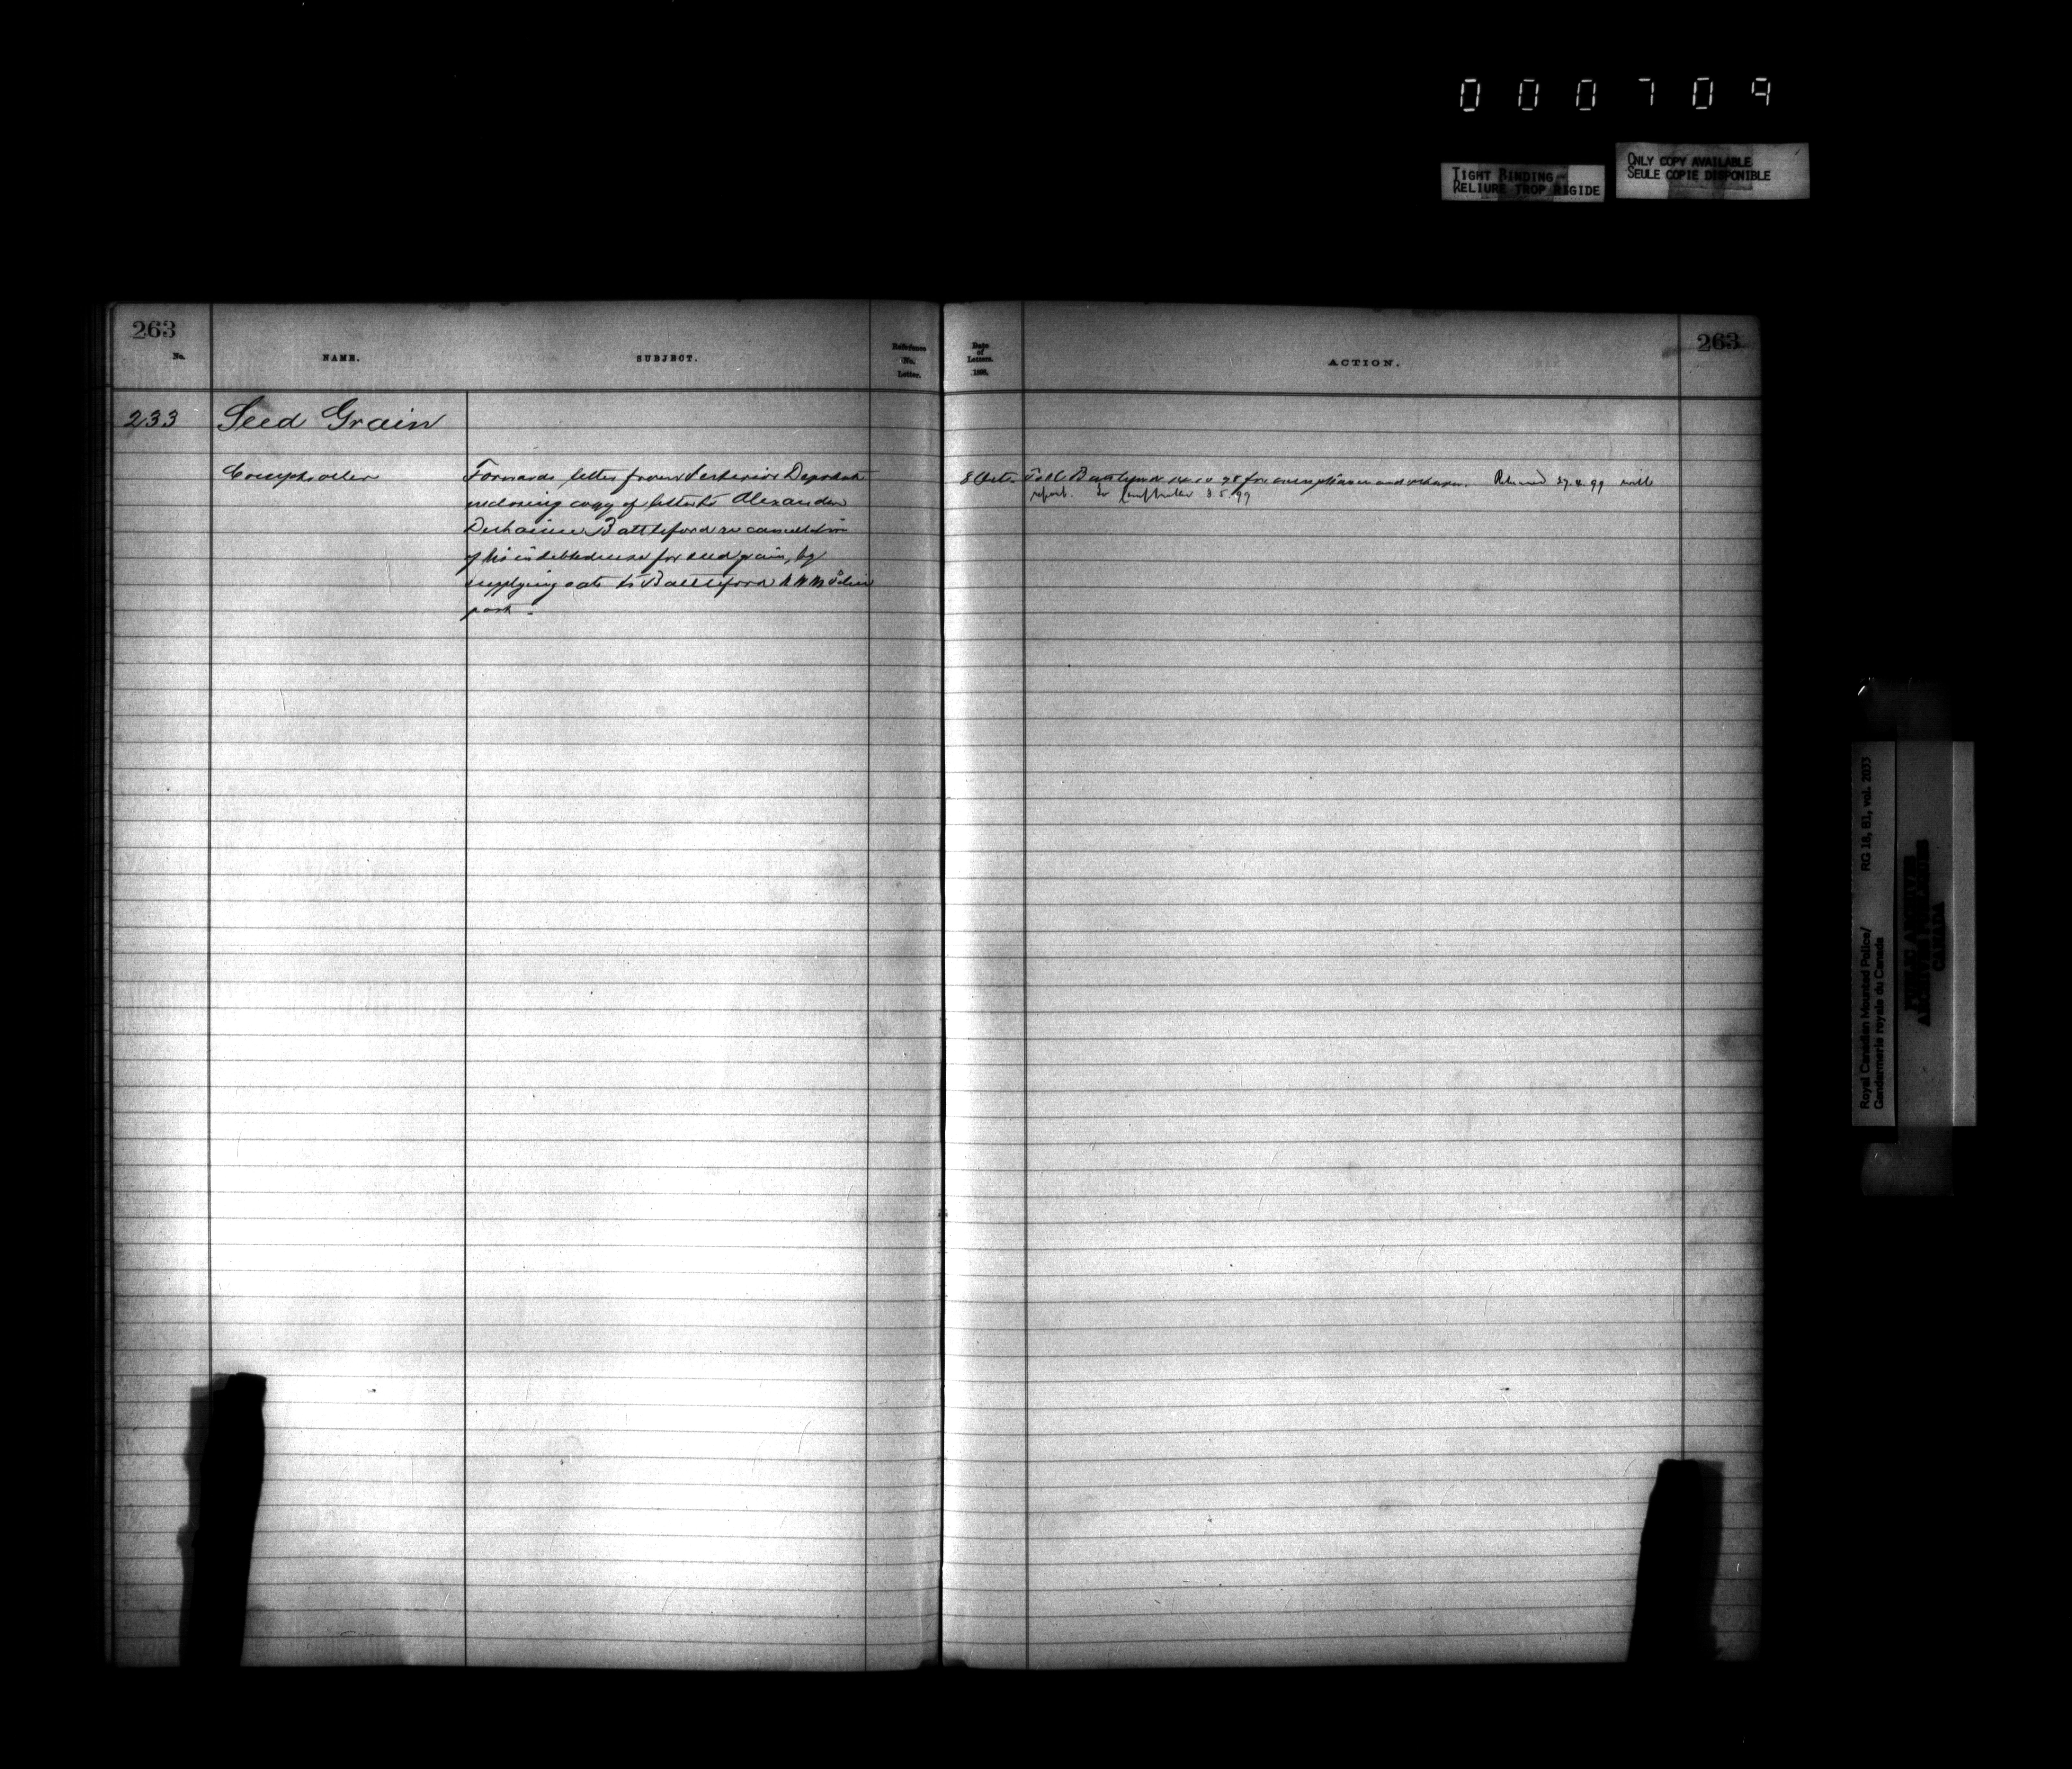 000709
TIGHT BINDING
RELIURE TROP RIGIDE
ONLY COPY AVAILABLE
SEULE COPIE DISPONIBLE
263
No.
NAME.
SUBJECT.
Reference
No.
Letter.
Date
of
Letters.
1898.
ACTION.
263
233 Seed Grain
Comptroller
Forwards letter from Interior Departmt
enclosing copy of letter to Alexander
Battleford re cancellation
of his indebtedness for seed grain, by
supplying oats to Battleford N W M Police
post.
8 Octr.
To O.C. Battleford 14.10.98 for compliance and return. Returned 27.4.99 with
report. To Comptroller 8.5.99
Royal Canadian Mounted Police/
Gendarmerie royale du Canada
RG 18, B1, vol. 2033
PUBLIC ARCHIVES
ARCHIVES PUBLIQUES
CANADA